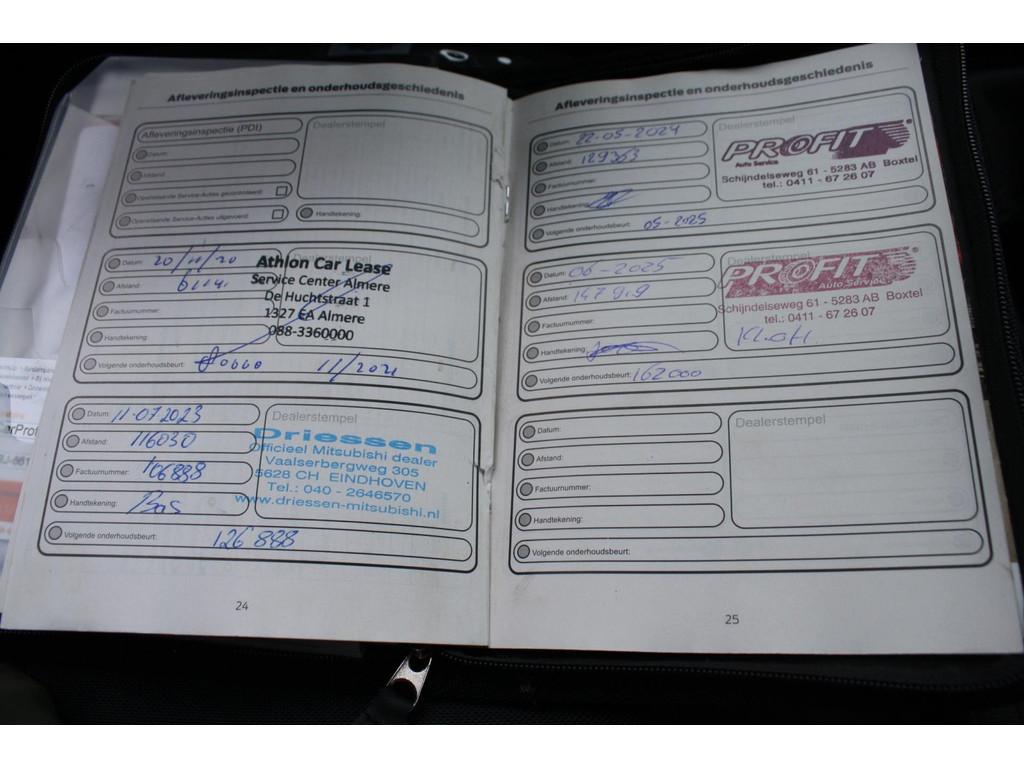 Afleveringsinspectie en onderhoudsgeschiedenis
Afleveringsinspectie (PDI)
Dealerstempel
Datum:
Afstand:
Openstaande Service-Acties gecontroleerd:
Openstaande Service-Acties uitgevoerd:
Handtekening:
Datum: 20/11/20
Dealerstempel
Afstand:
Factuurnummer:
Handtekening:
Athlon Car Lease
Service Center Almere
De Huchtstraat 1
1327 EA Almere
088-3360000
Volgende onderhoudsbeurt: 11/2021
Datum: 11-07 2023
Afstand: 116030
Factuurnummer: 106888
Handtekening: Bas
Dealerstempel
Driessen
Officieel Mitsubishi dealer
Vaalserbergweg 305
5628 CH EINDHOVEN
Tel.: 040 - 2646570
www.driessen-mitsubishi.nl
Volgende onderhoudsbeurt: 126 888
24
Afleveringsinspectie en onderhoudsgeschiedenis
Datum: 22-05-2024
Afstand: 129363
Factuurnummer:
Handtekening:
Dealerstempel
PROFIT
Auto Service
Schijndelseweg 61 - 5283 AB Boxtel
tel.: 0411 - 67 26 07
Volgende onderhoudsbeurt: 05-2025
Datum: 06-2025
Afstand: 147 919
Factuurnummer:
Handtekening:
Dealerstempel
PROFIT
Auto Service
Schijndelseweg 61 - 5283 AB Boxtel
tel.: 0411 - 67 26 07
Volgende onderhoudsbeurt: 162000
Datum:
Afstand:
Factuurnummer:
Handtekening:
Dealerstempel
Volgende onderhoudsbeurt:
25